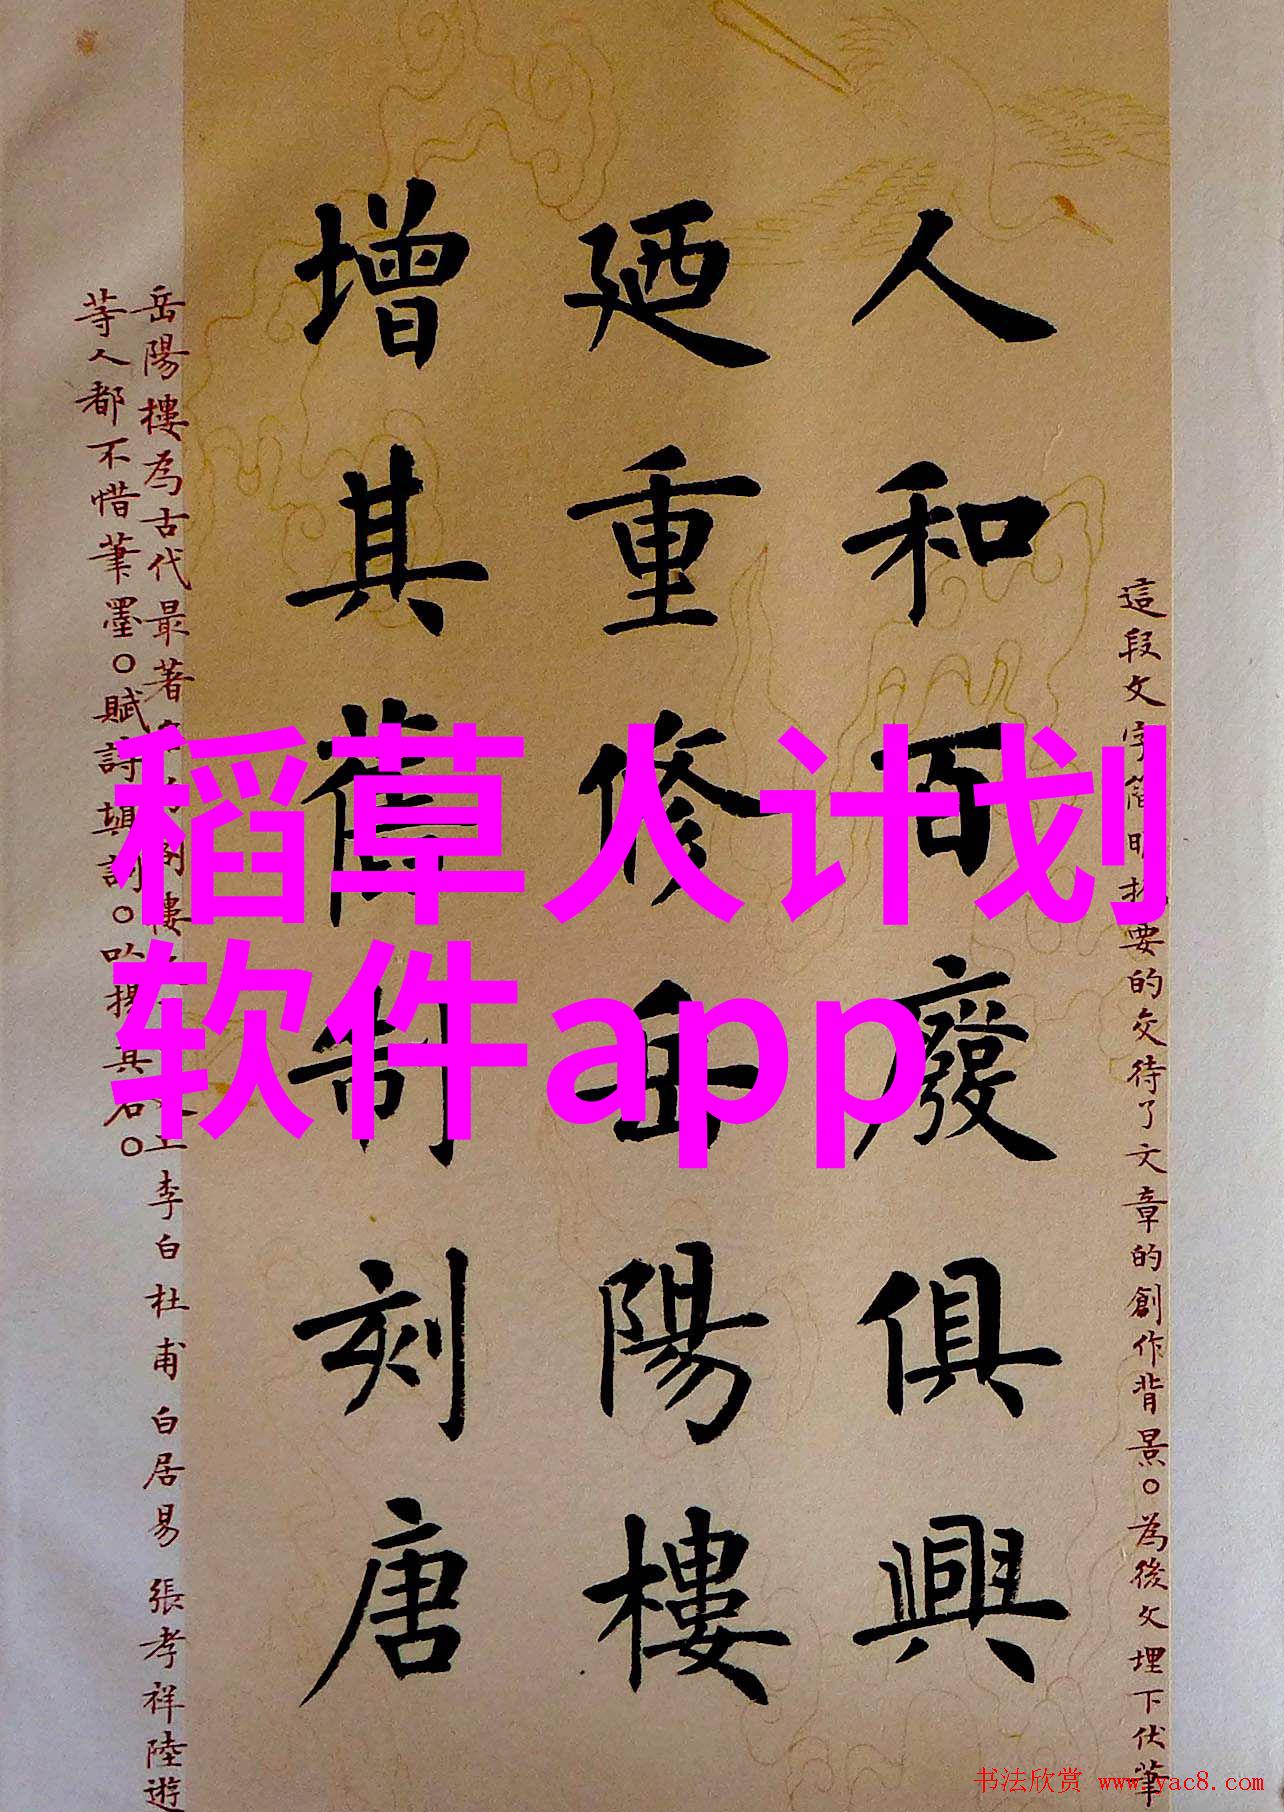 稻草人计划
软件app
這段文字簡明要的交待了文章的創作背景。為後文埋下伏筆
人和百廢俱興
廼重修岳陽樓
增其舊制刻唐
岳陽樓為古代最著樓李白杜甫白居易張孝祥陸遊
等人都不惜筆墨。賦詩填詞。揚其名。
书法欣赏 www.yac8.com